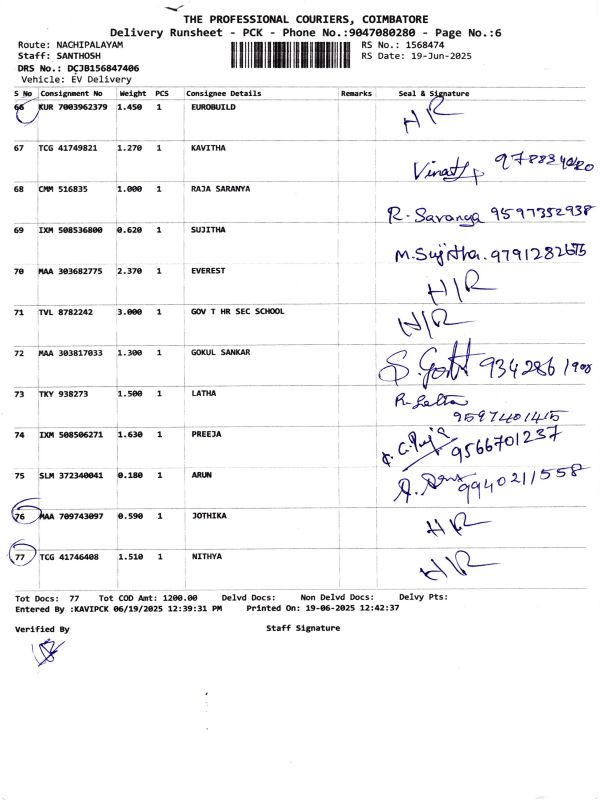 THE PROFESSIONAL COURIERS, COIMBATORE
Delivery Runsheet - PCK - Phone No.:9047080280 - Page No.:6
Route: NACHIPALAYAM RS No.: 1568474
Staff: SANTHOSH RS Date: 19-Jun-2025
DRS No.: DCJB156847406
Vehicle: EV Delivery
S No Consignment No Weight PCS Consignee Details Remarks Seal & Signature
66 KUR 7003962379 1.450 1 EUROBUILD H/R
67 TCG 41749821 1.270 1 KAVITHA
68 CMM 516835 1.000 1 RAJA SARANYA R. Saranya 9597352938
69 IXM 508536800 0.620 1 SUJITHA M. Sujitha. 9791282675
70 MAA 303682775 2.370 1 EVEREST H/R
71 TVL 8782242 3.000 1 GOV T HR SEC SCHOOL H/R
72 MAA 303817033 1.300 1 GOKUL SANKAR
73 TKY 938273 1.500 1 LATHA R. Latha
9597401415
74 IXM 508506271 1.630 1 PREEJA 9566701237
75 SLM 372340041 0.180 1 ARUN A. Arun 9940211558
76 MAA 709743097 0.590 1 JOTHIKA H/R
77 TCG 41746408 1.510 1 NITHYA H/R
Tot Docs: 77 Tot COD Amt: 1200.00 Delvd Docs: Non Delvd Docs: Delvy Pts:
Entered By :KAVIPCK 06/19/2025 12:39:31 PM Printed On: 19-06-2025 12:42:37
Verified By Staff Signature